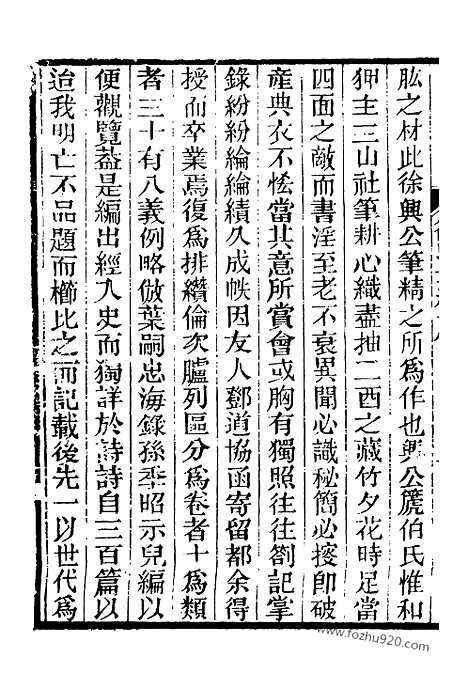 肱之材此徐興公筆精之所為作也興公篪伯氏惟和
狎主三山社筆耕心織盡抽二酉之藏竹夕花時足當
四面之敵而書淫至老不衰異聞必識秘簡必搜卽破
產典衣不恡當其意所賞會或胸有獨照往往劄記掌
錄紛紛綸綸績久成帙因友人鄧道協函寄留都余得
授而卒業焉復為排纘倫次臚列區分為卷者十為類
者三十有八義例略倣葉嗣忠海錄孫季昭示兒編以
便觀覽葢是編出經入史而獨詳於詩詩自三百篇以
迨我明亡不品題而櫛比之而記載後先一以世代為
www.fozhu920.com